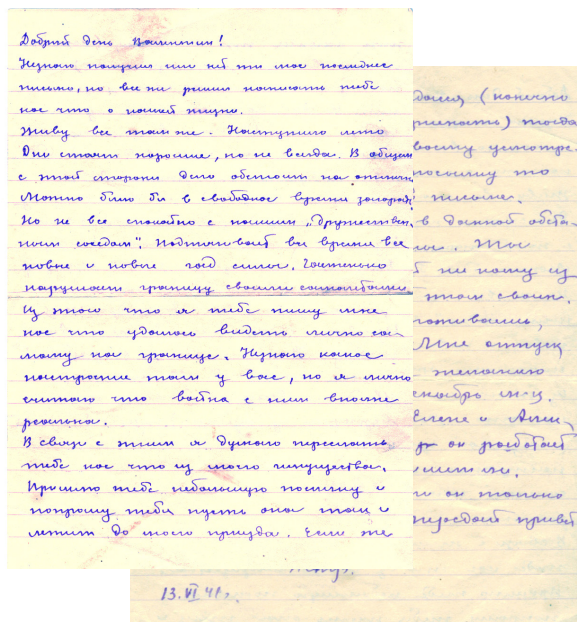 Добрый день Валентин!
Незнаю получил или нет ты мое последнее
письмо, но все ни решил написать тебе
кое что о нашей жизни.
Живу все там же. Наступило лето
Дни стоят хорошие, но не всегда. В общем
с этой стороны дело обстоит на отлично
Можно было бы в свободное время загорать
Но не все спокойно с нашим „дружествен-
ным соседом". Подтягивает все время все
новые и новые силы. Частенько
нарушает границу своими самолетами
Из этого что я тебе пишу мне
кое что удалось видеть лично са-
мому на границе. Незнаю какое
настроение там у вас, но я лично
считаю что война с ним вполне
реальна.
В связи с этим я думаю переслать
тебе кое что из моего имущества.
Пришлю тебе небольшую посылку и
попрошу тебя пусть она там и
лежит до моего приезда. Если же
(конечно
тогда
своему усмотре-
посылку то
письме.
в данной обста-
Ты
ни кому из
этом своим.
Мне отпуск
желанию
м-ц.
Елене и Алек-
он работает
он только
передает привет
13.VI 41г.